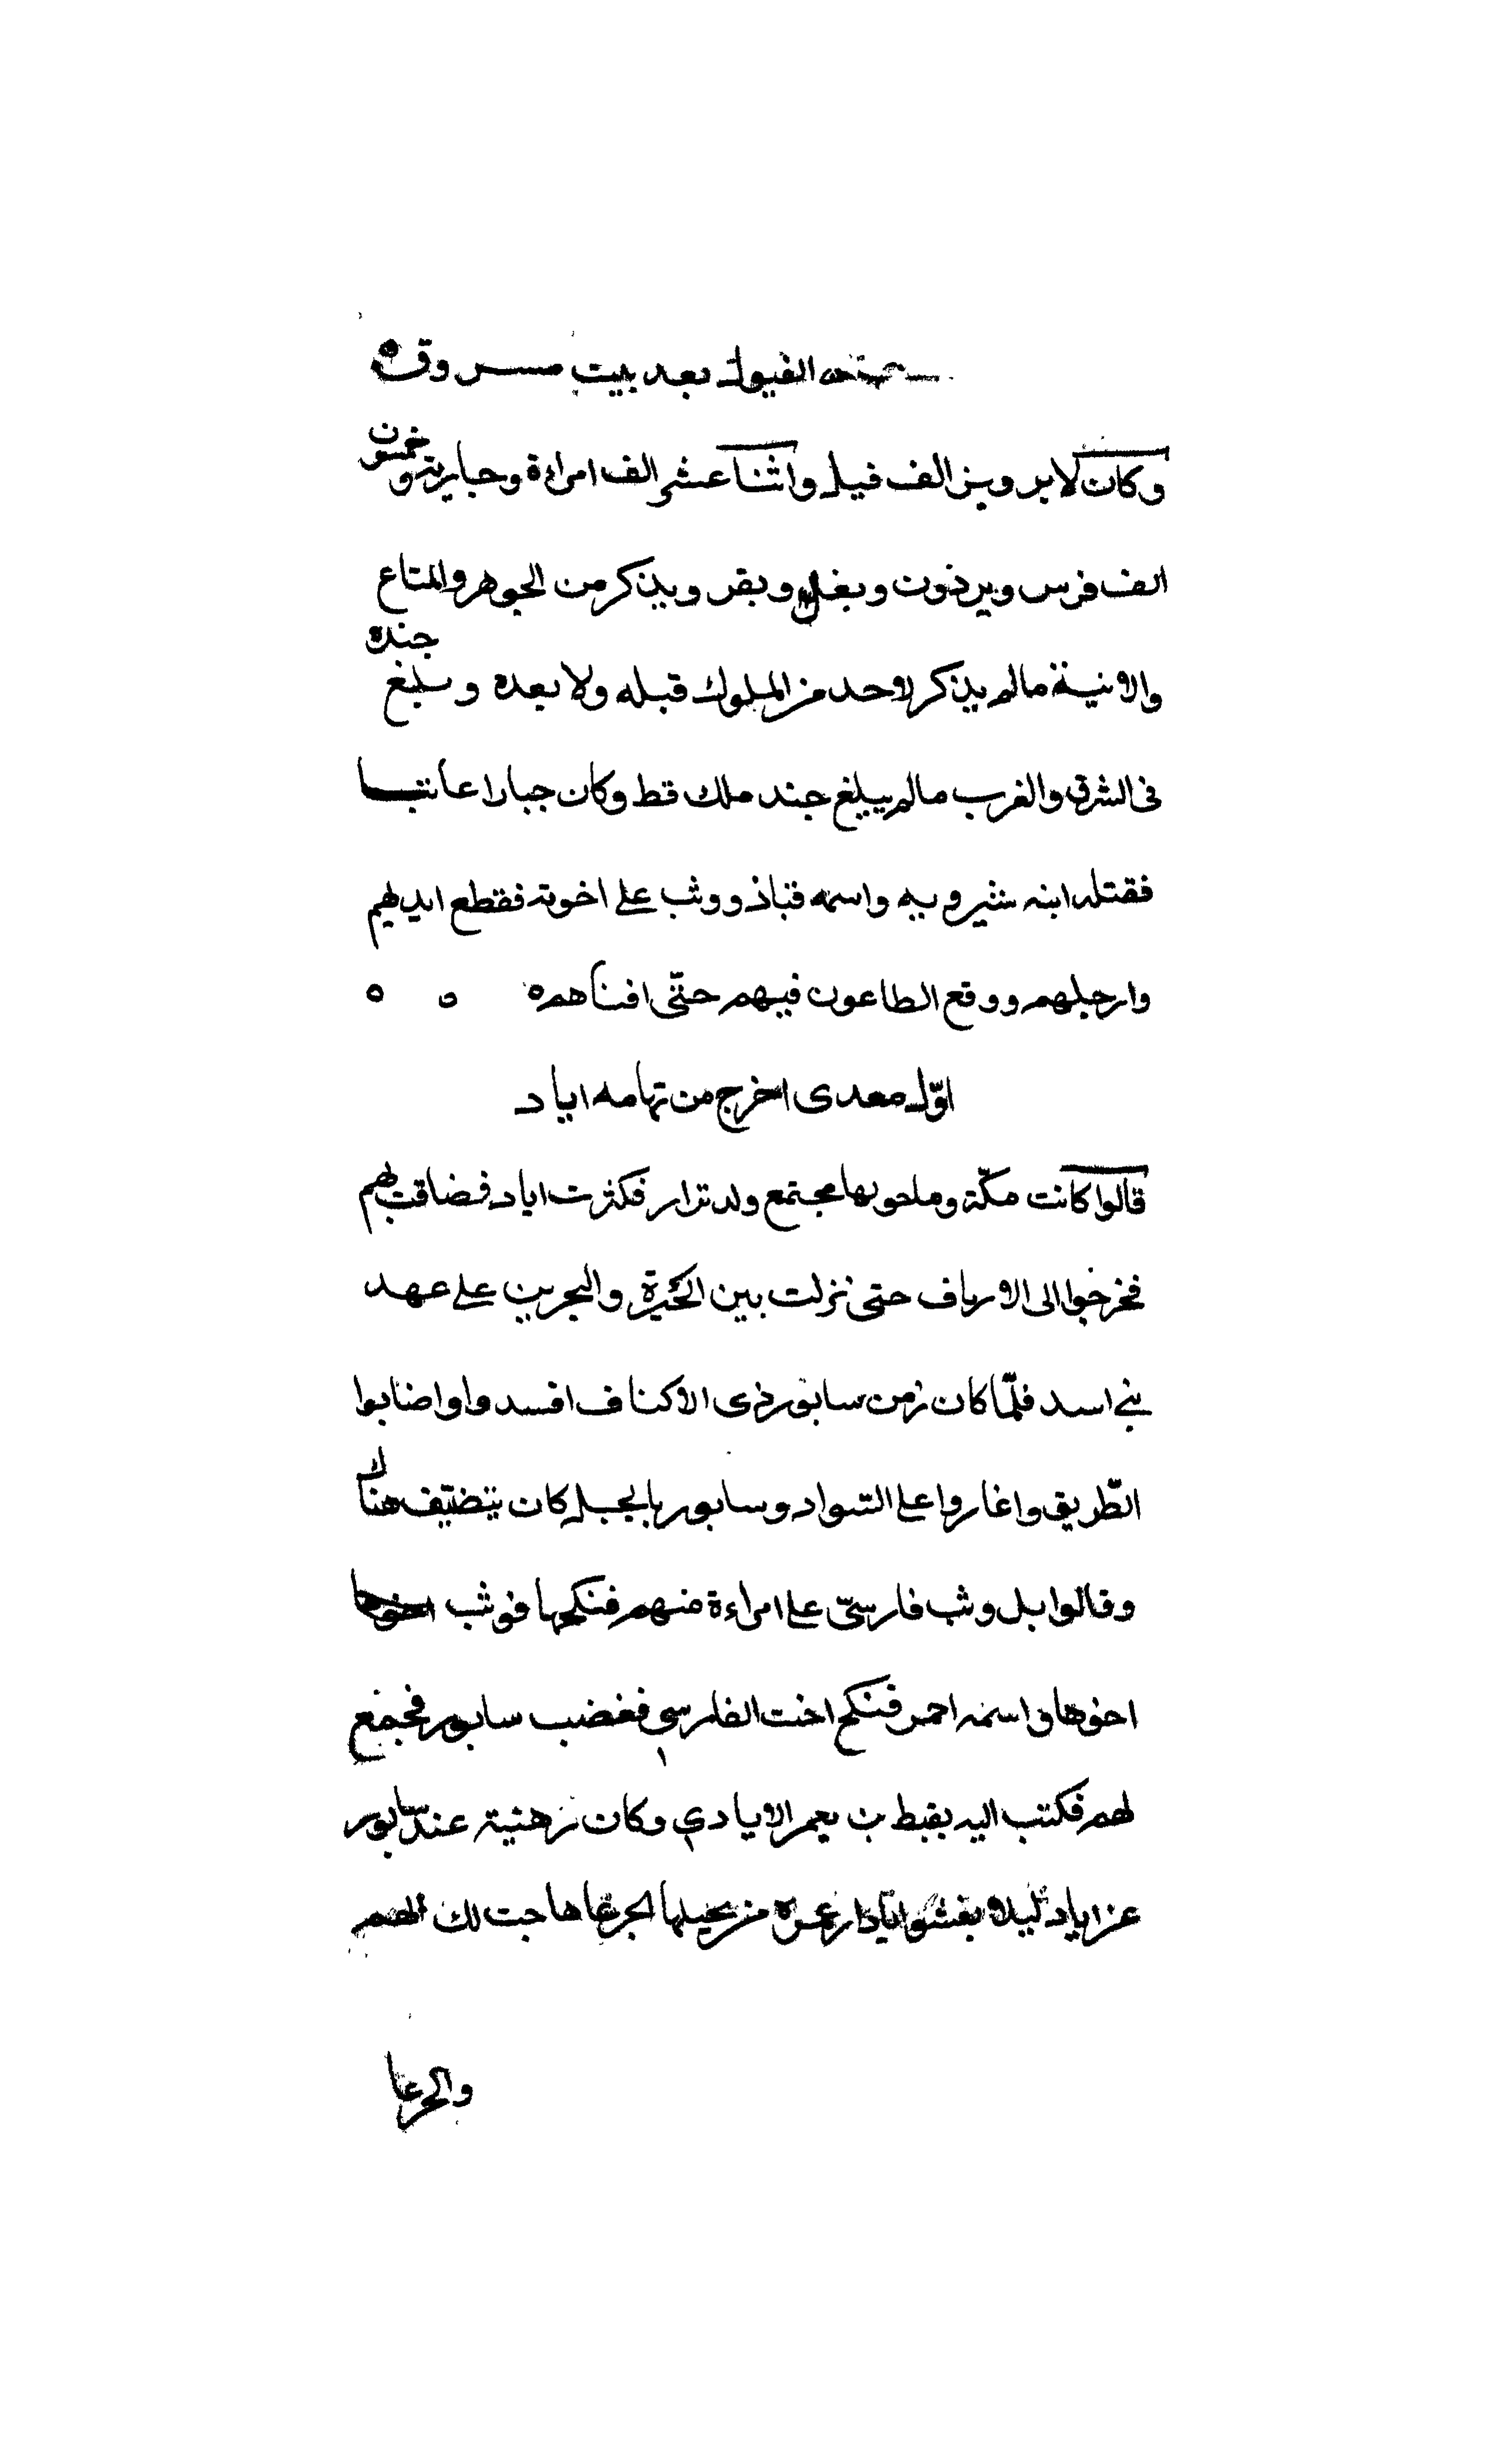 الفيول بعد بيت مسروق ه
وكان لابرويز الف فيل واثنا عشر الف امراءة وجبارية وخمسون
الف فرس وبرذون وبغل وبقر ويذكر من الجوهر والمتاع
والانية مالم يذكر لاحد من الملوك قبله ولا بعده وبلغ جنده
فى الشرق والغرب مالم يبلغ جند ملك قط وكان جبارا عاتيا
فقتله ابنه شيرويه واسمه قباذ ووثب على اخوته فقطع ايديهم
وارجلهم ووقع الطاعون فيهم حتّى افناهم ه ه ه
اوّل معدى اخرج من تهامه اياد
قالوا كانت مكّة وماحولها مجتمع ولد نزار فكثرت اياد فضاقت بهم
فخرجوا الى الارياف حتى نزلت بين الحيرة والبحرين على عهد
بنى اسد فلمّا كان زمن سابور ذى الاكناف افسدوا واضابوا
الطّريق واغاروا على السّواد وسابور بالجبل كان يتضيّف هناك
وقالوا بل وثب فارسىّ على امراءة منهم فنكحها فوثب
اخوها واسمه احمر فنكح اخت الفارسى فغضب سابور فجمع
لهم فكتب اليه بقيط بن يعمر الايادى وكان رهنية عند سابور
من يحيلها الجرعا هاجت لك الهم
والجرعا